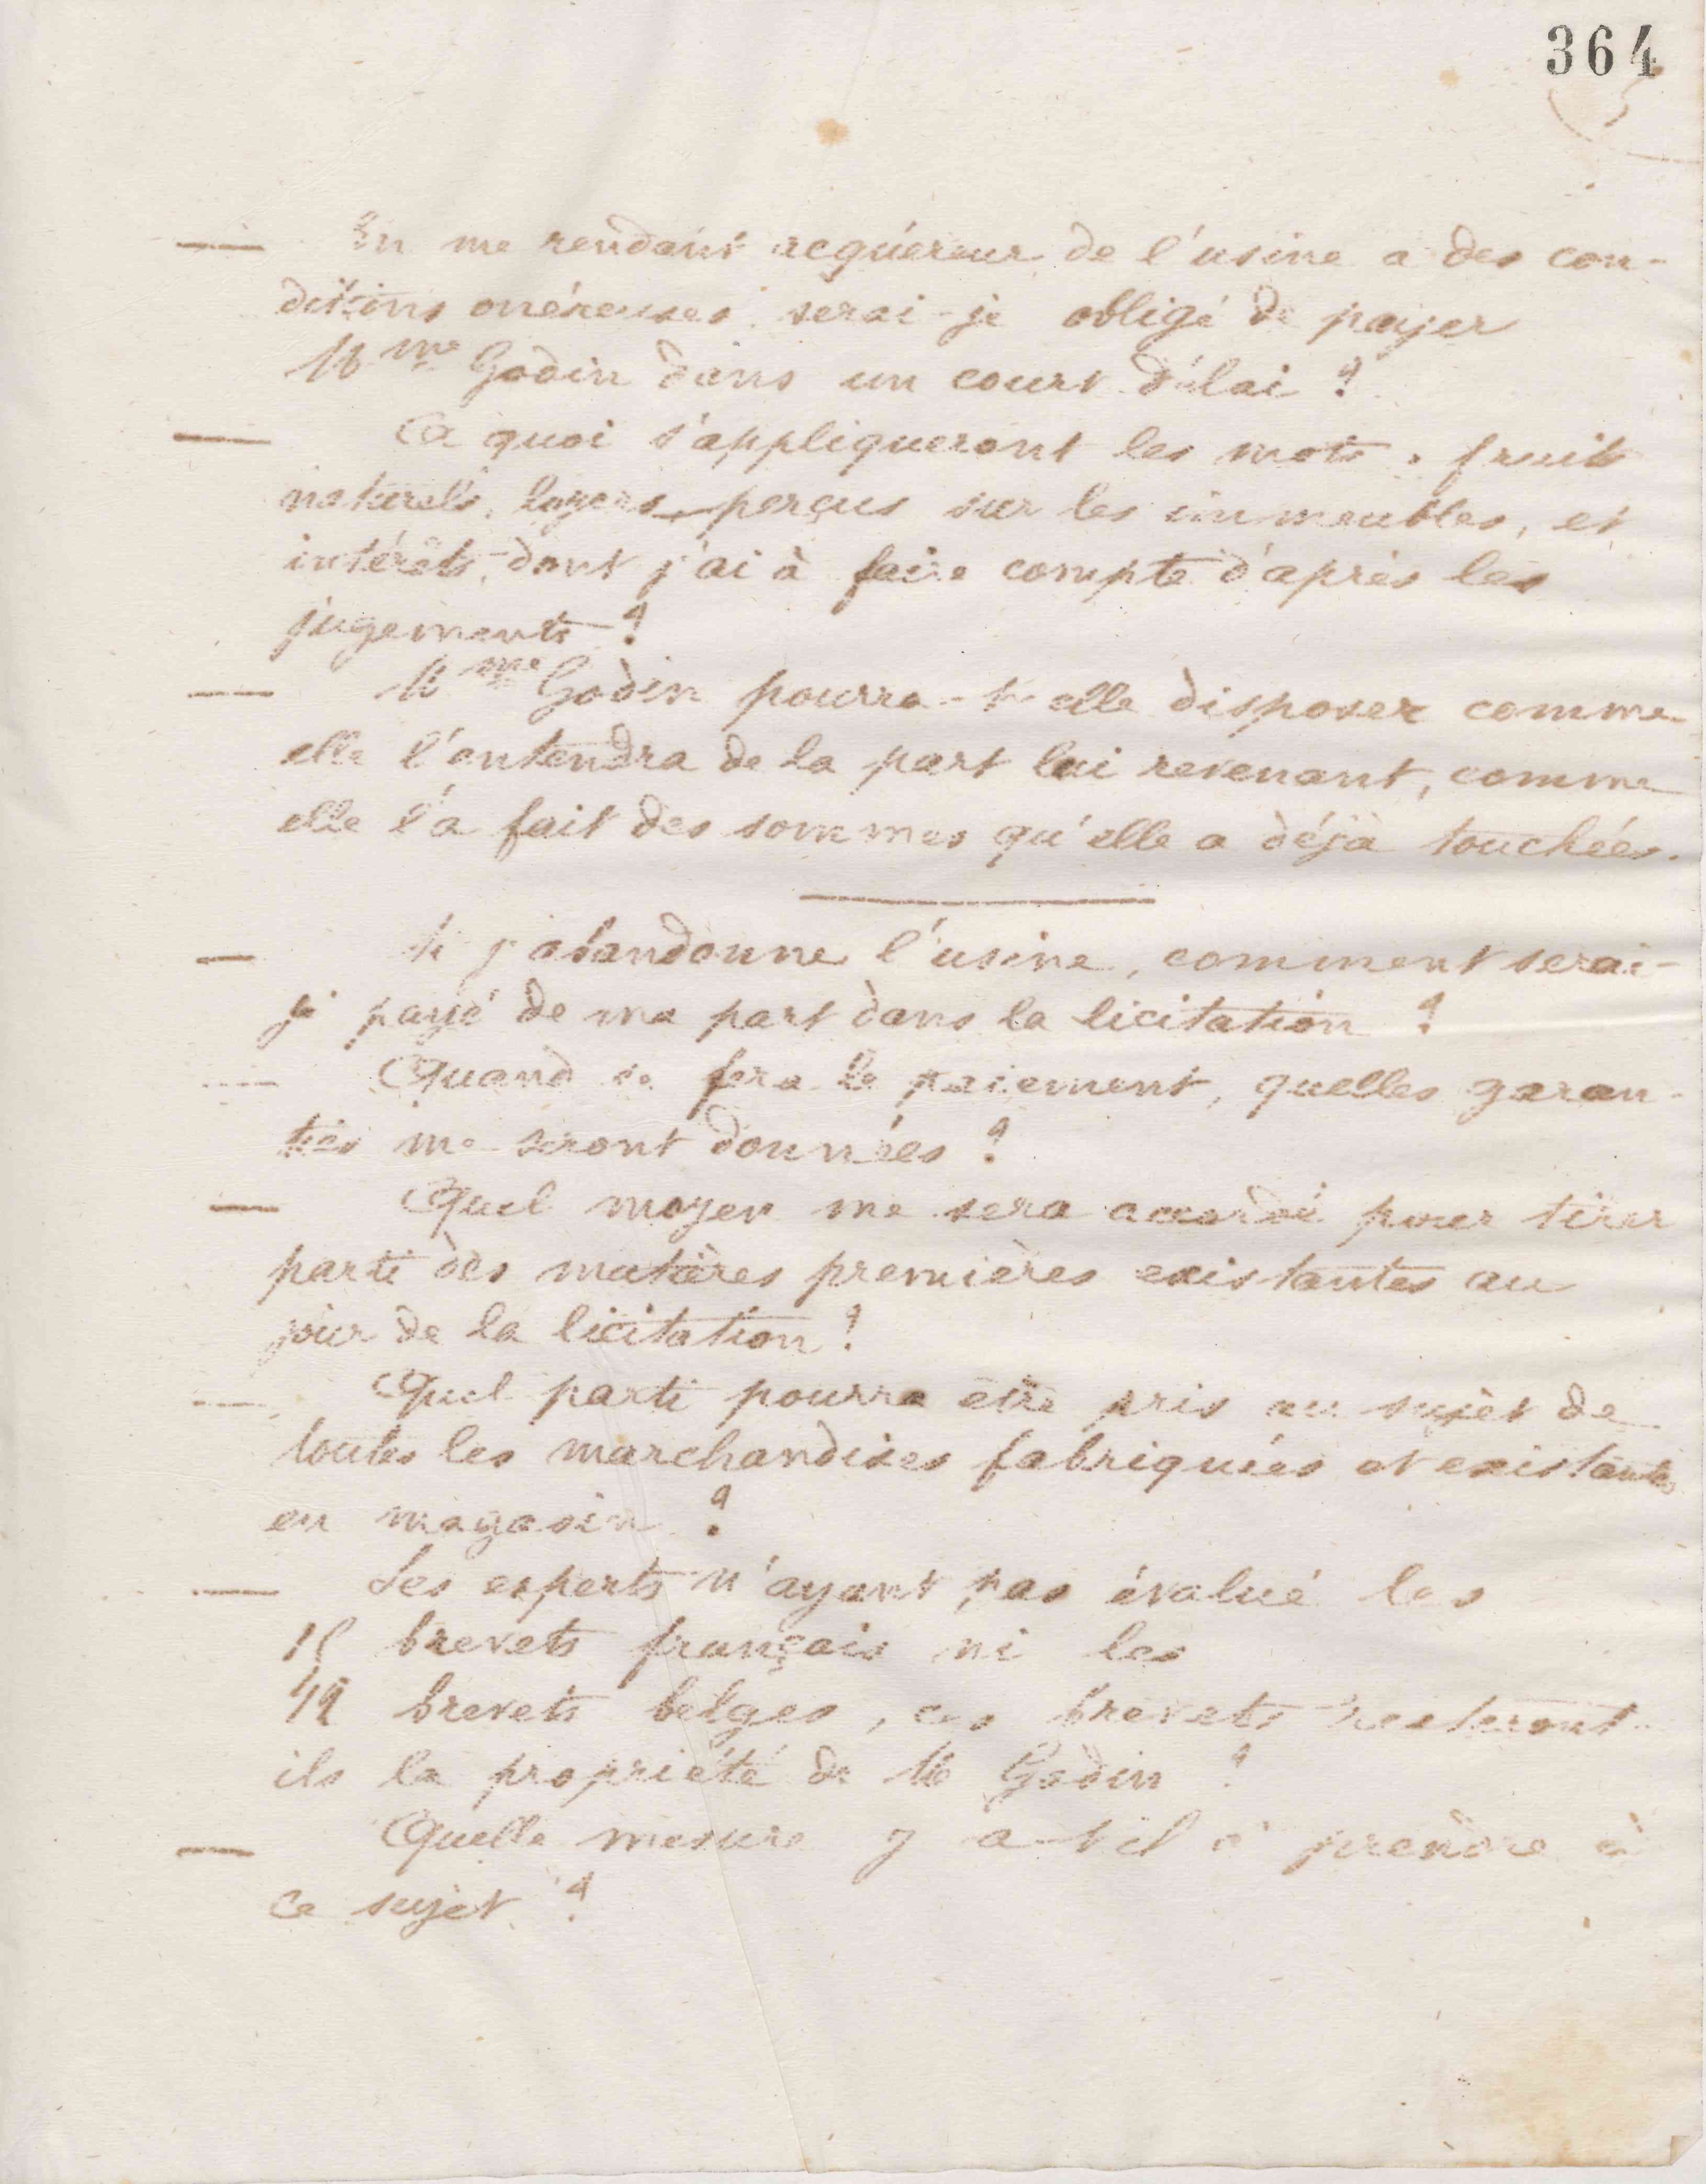 364
— En me rendant acquéreur de l'usine a des con-
ditions onéreuses serai-je obligé de payer
Mme Godin dans un court délai ?
— A quoi s'appliqueront les mots. fruits
naturels, loyers perçus sur les immeubles, et
intérêts, dont j'ai à faire compte d'après les
jugements ?
— Mme Godin pourra-t-elle disposer comme
elle l'entendra de la part lui revenant, comme
elle l'a fait des sommes qu'elle a déjà touchées.
— Si j'abandonne l'usine, comment serai-
je payé de ma part dans la licitation ?
— Quand se fera le paiement, quelles garan-
ties me seront données ?
— Quel moyen me sera accordé pour tirer
parti des matières premières existantes au
jour de la licitation ?
— Quel parti pourra être pris au sujet de
toutes les marchandises fabriquées et existantes
en magasin ?
— Les experts n'ayant pas évalué les
brevets français ni les
brevets belges, ces brevets resteront-
ils la propriété de M Godin ?
— Quelle mesure y a-t-il à prendre à
ce sujet ?